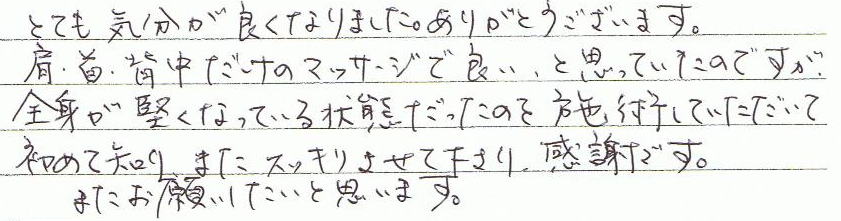 とても気分が良くなりました。ありがとうございます。
肩・首・背中だけのマッサージで良い、と思っていたのですが、
全身が堅くなっている状態だったのを施術していただいて
初めて知り、またスッキリさせて下さり、感謝です。
またお願いしたいと思います。